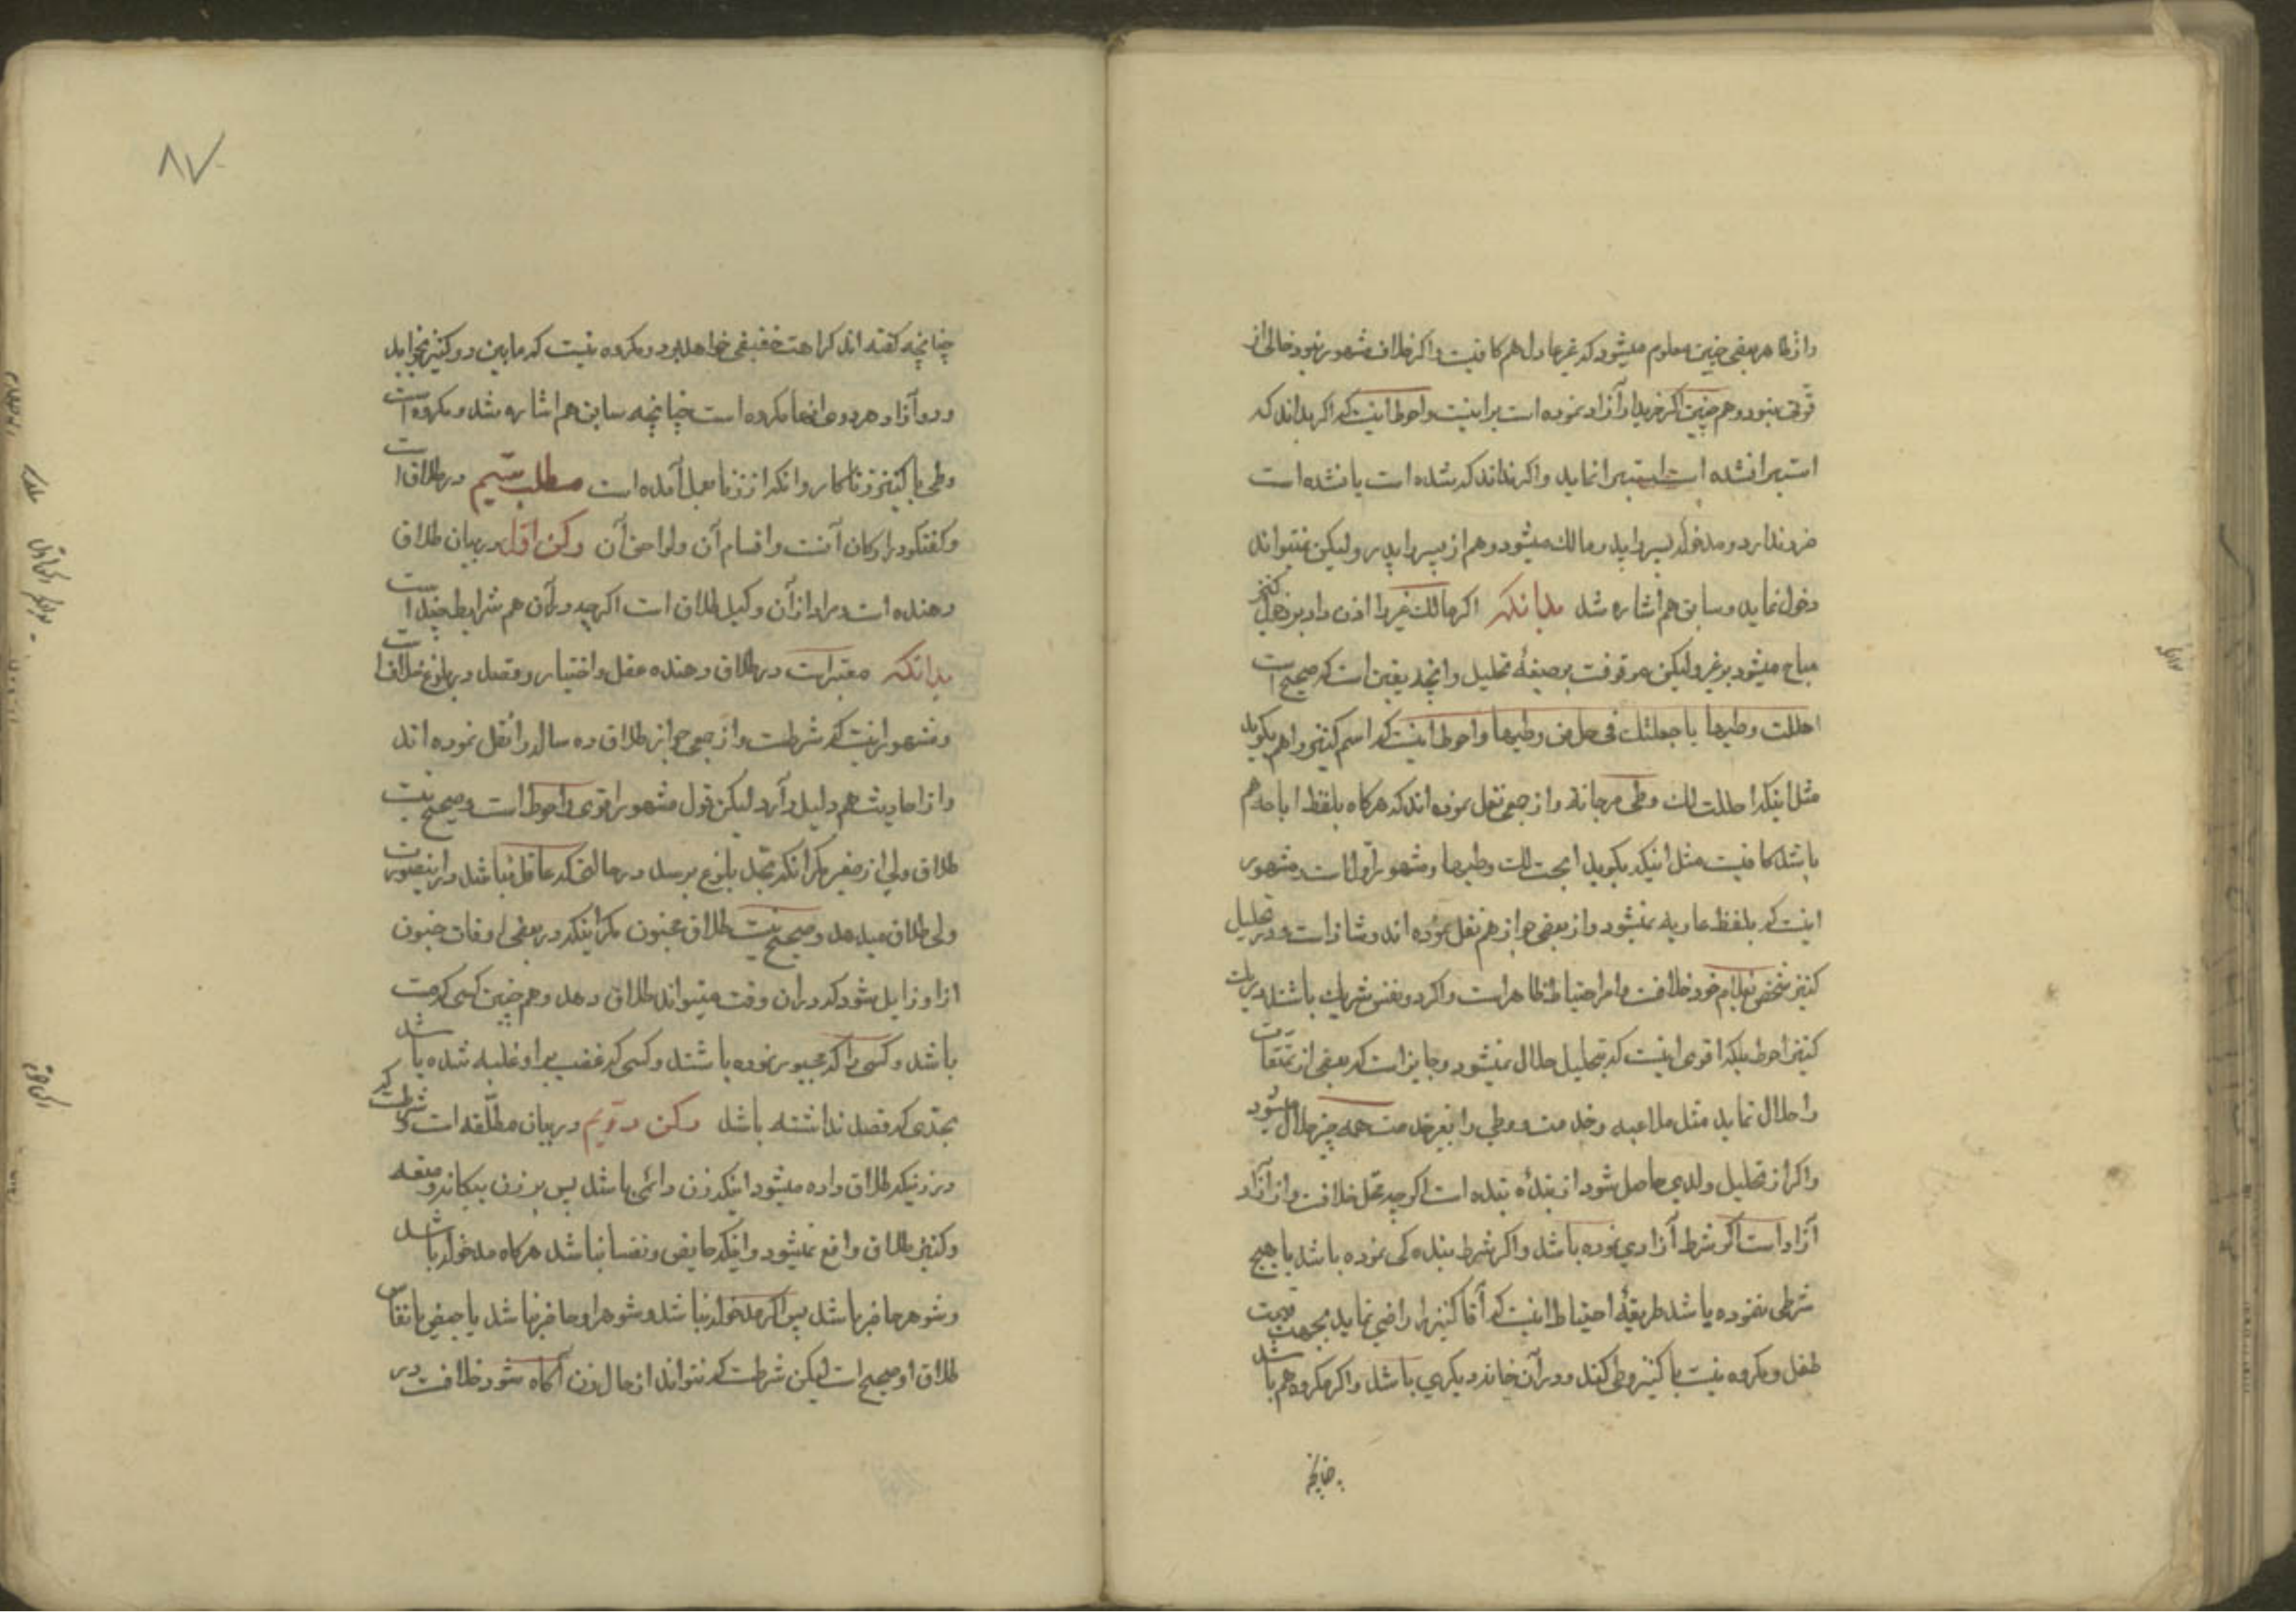 واز ظاهر بعضی چنین معلوم میشود که غیر عادل هم کافیست و اگر خلاف مشهور نبود خالی از
قوتی نبود و هم چنین اگر خرید او آزاد نموده است براینست و احوط اینست که اگر بداند که
استبرا نشده است استبرا نماید و اگر نداند که شده است یا نشده است
ضرر ندارد و مدخوله پسر را پدر مالک میشود و هم از پسر را پدر و لیکن نمیتواند
دخول نماید و سابق هم اشاره شد بدانکه اگر مالک غیر را اذن داد بر دخول کنیز
مباح میشود بر غیر و لیکن موقوفست بر صیغهٔ تحلیل و آنچه یقین است که صحیح است
احللت وطیها یا جعلتک فی حل من وطیها و احوط اینست که اسم کنیز را هم بگوید
مثل اینکه احللت لک وطی مرجانة و از جمعی نقل نموده اند که هرگاه بلفظ اباحه هم
باشد کافیست مثل اینکه بگوید ابحت لک وطیها و مشهور
اینست که بلفظ عاریه نمیشود و از بعضی جواز هم نقل نموده اند و شاذ است و در تحلیل
کنیز شخص بغلام خود خلافست و امر احتیاط ظاهر است و اگر دو نفس شریک باشند در یک
کنیز احوط بلکه اقوی اینست که بتحلیل حلال نمیشود و جایز است که بعضی از تمتعات
را حلال نماید مثل ملاعبه و خدمت و وطی را بغیر خدمت همه چیز حلال میشود
و اگر از تحلیل ولدی حاصل شود از بندهٔ بنده است اگر چه محل خلافست و از آزاد
آزاد است اگر شرط آزادی نموده باشد و اگر شرط بنده کی نموده باشد یا هیچ
شرطی ننموده باشد طریقهٔ احتیاط اینست که آقا کنیز را راضی نماید بجهت قیمت
طفل و مکروه نیست با کنیز وطی کند و در آن خانه دیگری باشد و اگر مکروه هم باشد
چنانچه
۸۷
چنانچه گفته اند کراهت خفیفی خواهد بود و مکروه نیست که مابین دو کنیز بخوابد
و دو آزاد و هر دوی انها مکروه است چنانچه سابق هم اشاره شد و مکروه است
وطی با کنیز زناکار و انکه از زنا بعمل آمده است مطلب سیم در طلاق است
و گفتگو در ارکان آنست و اقسام آن و لواحق آن رکن اول در بیان طلاق
دهنده است و مراد از آن وکیل طلاق است اگر چه در آن هم شرایط چند است
بدانکه معتبر است در طلاق دهنده عقل و اختیار و قصد و در بلوغ خلافست
و مشهور اینست که شرطست و از جمعی جواز طلاق ده ساله را نقل نموده اند
و از احادیث هم دلیل دارد لیکن قول مشهور اقوی و احوط است و صحیح نیست
طلاق ولی از صغیر مگر انکه بحد بلوغ برسد در حالتی که عاقل نباشد در اینصورت
ولی طلاق میدهد و صحیح نیست طلاق مجنون مگر اینکه در بعضی اوقات جنون
از او زایل شود که در ان وقت میتواند طلاق دهد و هم چنین کسی که مست
باشد و کسی را که مجبور نموده باشند و کسی که غضب بر او غلبه شده باشد
بحدی که قصد نداشته باشد رکن دویم در بیان مطلقه است و شرطست که
در زنیکه طلاق داده میشود اینکه زن دائمی باشد پس بر زن بیگانه و متعه
و کنیز طلاق واقع نمیشود و اینکه حایض و نفسا نباشد هرگاه مدخوله باشد
و شوهر حاضر باشد پس اگر مدخوله نباشد و شوهر او حاضر نباشد یا حیض یا نفاس
طلاق او صحیح است لیکن شرطست که نتواند از حال زن آگاه شود خلافست در